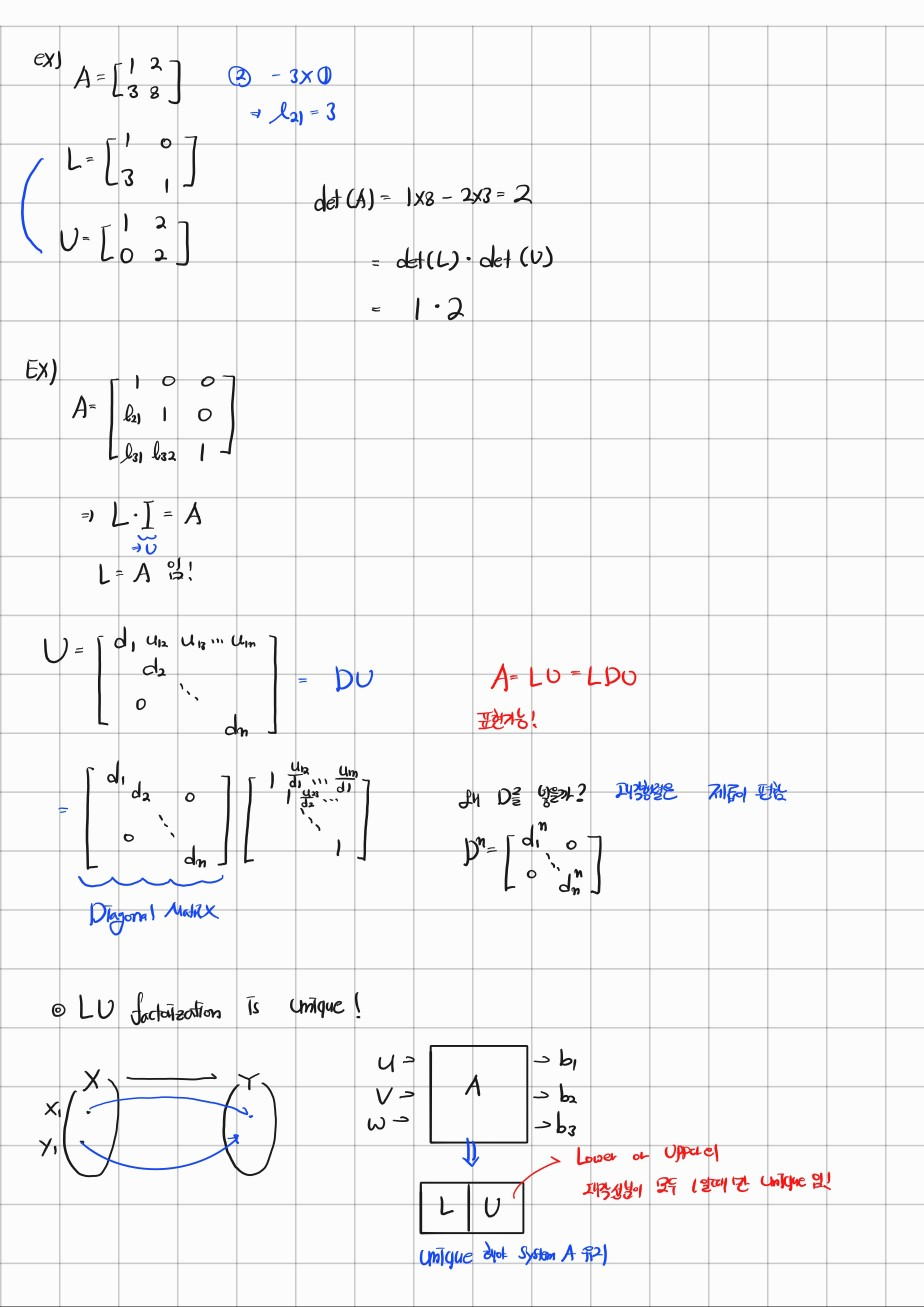 ex) A = [1 2; 3 8] ② - 3×①
⇒ l21 = 3
L = [1 0; 3 1]
U = [1 2; 0 2]
det(A) = 1×8 - 2×3 = 2
= det(L) · det(U)
= 1 · 2
EX)
A = [1 0 0; l21 1 0; l31 l32 1]
⇒ L · I = A
→ U
L = A 임!
U = [d1 u12 u13 ... u1n; d2; 0 ⋱; dn] = DU
A = LU = LDU
표현가능!
= [d1; d2 0; 0 ⋱; dn] [1 u12/d1 ... u1n/d1; 1 u23/d2 ...; ⋱; 1]
Diagonal Matrix
왜 D를 넣을까? 대각행렬은 제곱이 편함
Dⁿ = [d1ⁿ 0; ⋱; 0 dnⁿ]
◎ LU factorization is unique!
X → Y
x1
y1
u → A → b1
v → → b2
w → → b3
L | U
Lower or Upper에
대각성분이 모두 1 일때만 unique 임!
unique 해야 System A 유지